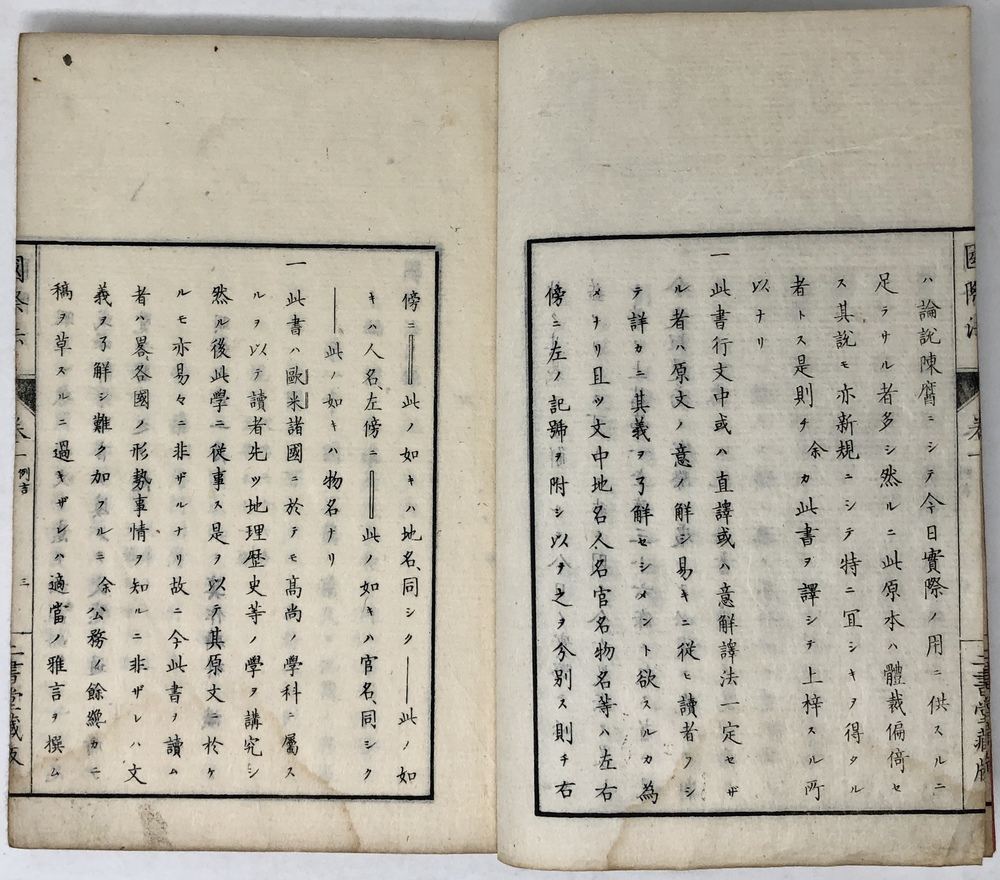 國際法
卷一
二書堂藏版
ハ論說陳腐ニシテ今日實際ノ用ニ供スルニ
足ラサル者多シ然ルニ此原本ハ體裁偏倚セ
ス其說モ亦新規ニシテ特ニ冝シキヲ得タル
者トス是則チ余カ此書ヲ譯シテ上梓スル所
以ナリ
一此書行文中或ハ直譯或ハ意解譯法一定セザ
ル者ハ原文ノ意ノ解シ易キニ從ヒ讀者ヲシ
テ詳カニ其義ヲ了解セシメント欲スルカ為
メナリ且ツ文中地名人名官名物名等ハ左右
傍ニ左ノ記號ヲ附シ以テ之ヲ分別ス則チ右
傍ニ此ノ如キハ地名同シク此ノ如
キハ人名左傍ニ此ノ如キハ官名同シク
此ノ如キハ物名ナリ
一此書ハ歐米諸國ニ於テモ高尚ノ學科ニ屬ス
ルヲ以テ讀者先ツ地理歷史等ノ學ヲ講究シ
然ル後此學ニ從事ス是ヲ以テ其原文ニ於ケ
ルモ亦易々ニ非ザルナリ故ニ今此書ヲ讀ム
者ハ畧各國ノ形勢事情ヲ知ルニ非ザレハ文
義ヲ了解シ難ク加フルニ余公務ノ餘纔カニ
稿ヲ草スルニ過キザレハ適當ノ雅言ヲ撰ム
國際法
卷一
例言
三
二書堂藏版